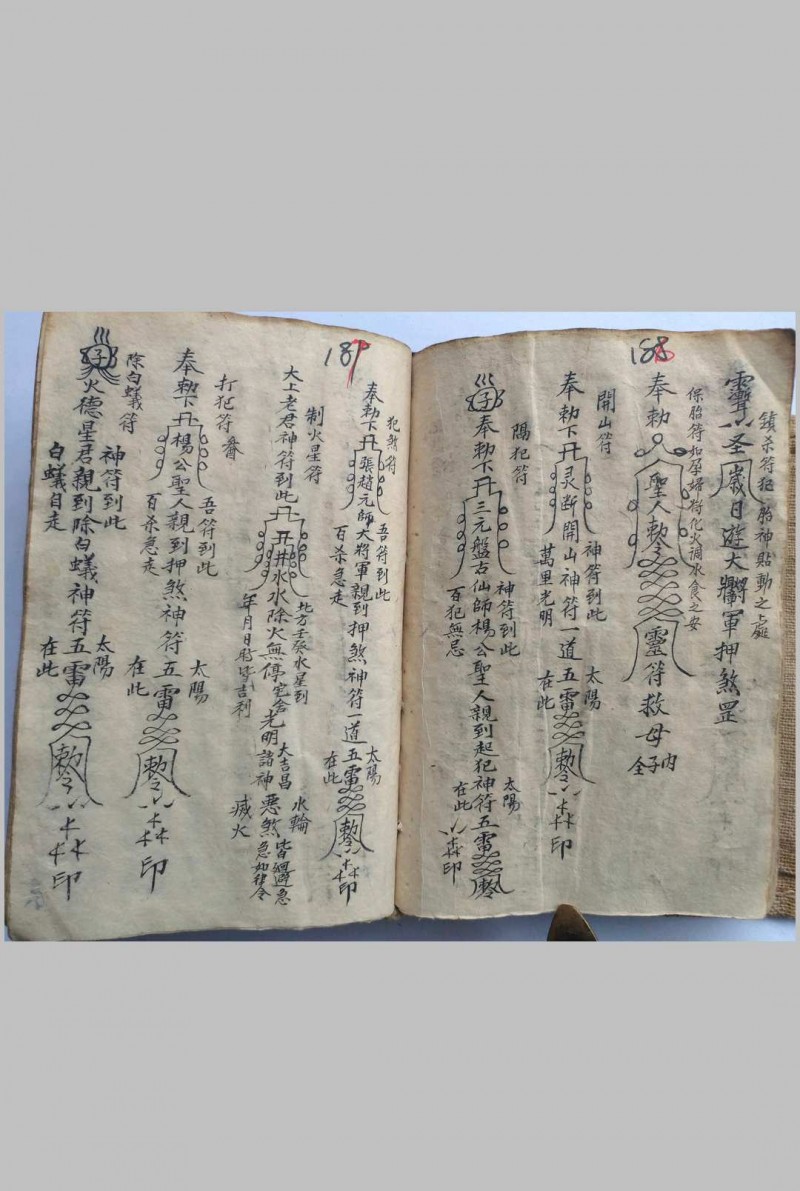 188
鎮杀符犯胎神贴動之處
聖歲日遊大將軍押煞罡
保胎符如孕婦符化火调水食之安
奉勅聖人勅令靈符救母
內子全
開山符
奉勅下灵断開山神符一道五雷勅令
神符到此
萬里光明
太陽
在此
印
陽犯符
奉勅下三元盤古仙師楊公聖人親到起犯神符五雷勅令
神符到此
百犯無忌
太陽
在此
印
187
犯煞符
奉勅下張趙元帥大將軍親到押煞神符一道五雷勅令
吾符到此
百杀急走
太陽
在此
印
制火星符
大上老君神符到此井水水除火無停宅舍光明諸神惡煞皆迴避急急如律令
北方壬癸水星到
年月日时皆吉利
大吉昌
水輪
滅火
打犯符
奉勅下楊公聖人親到押煞神符五雷勅令
吾符到此
百杀急走
太陽
在此
印
除白蟻符
火德星君親到除白蟻神符五雷勅令
神符到此
白蟻自走
太陽
在此
印